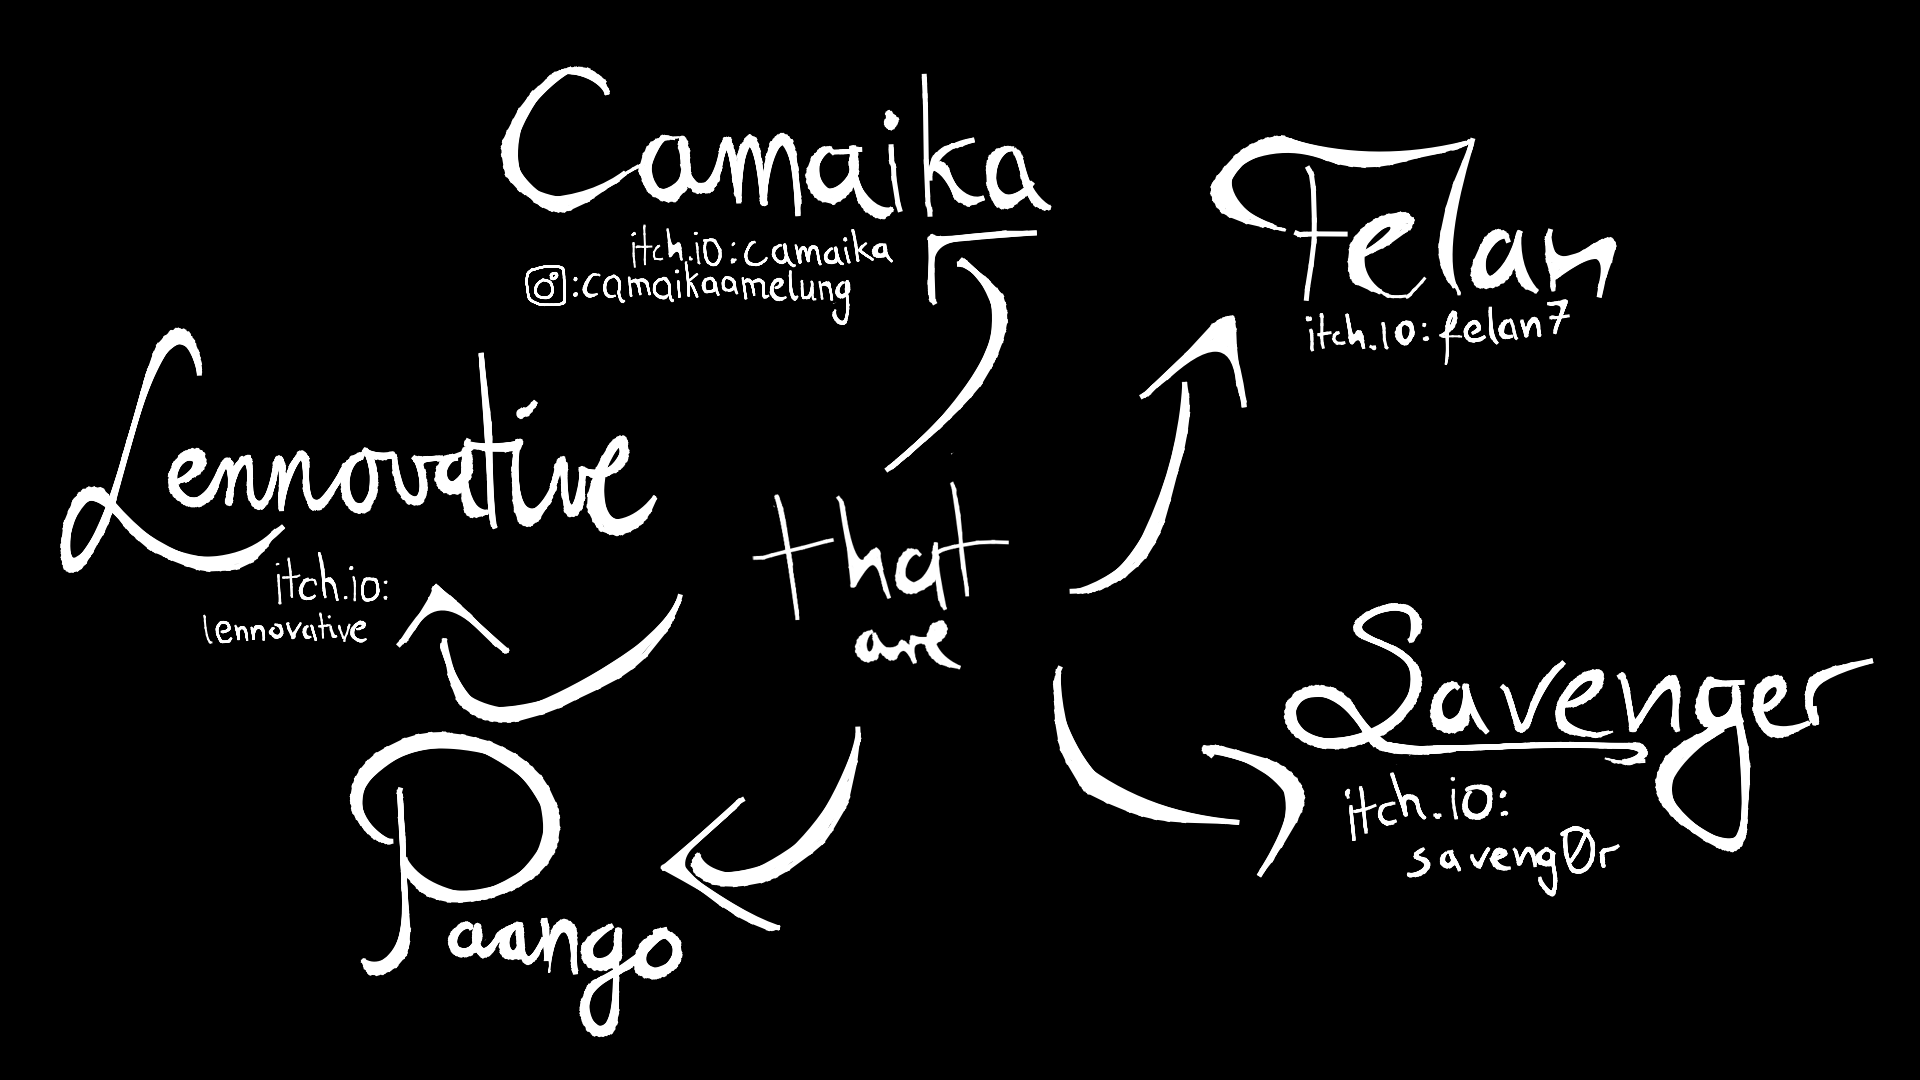 Camaika
itch.io:camaika
:camaikaamelung
Felan
itch.io:felan7
Lennovative
itch.io:
lennovative
that
are
Savenger
itch.io:
saveng0r
Paango